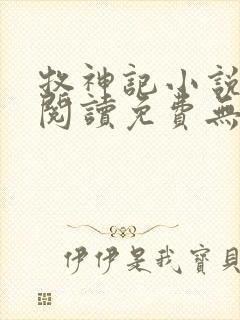 牧神記小說
閱讀免費無
伊伊是我寶貝